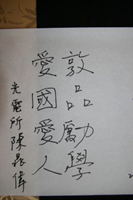 敦品勵學
愛國愛人
光電所陳晨偉